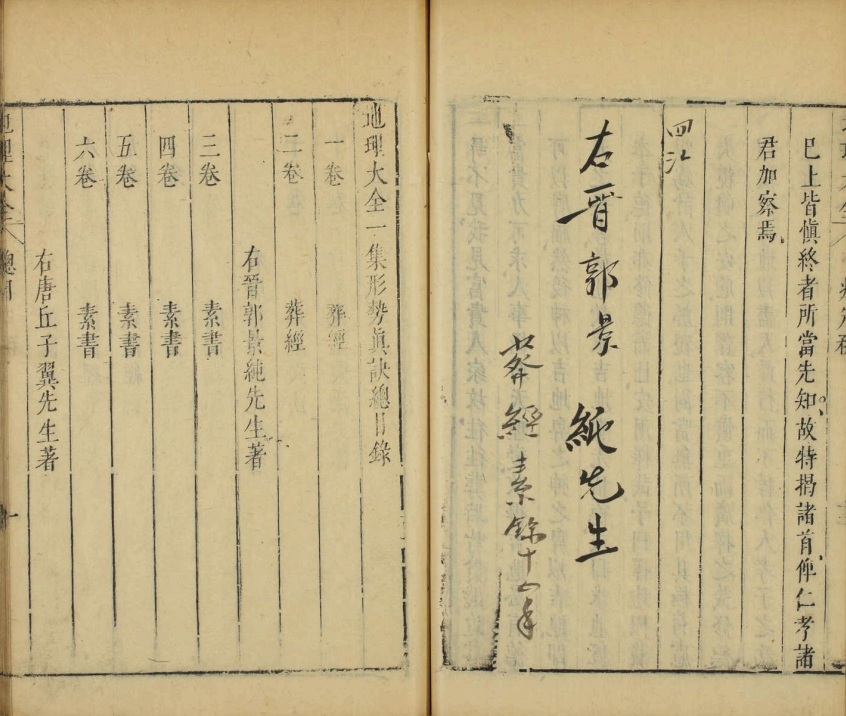 巳上皆愼終者所當先知故特揭諸首俾仁孝諸
君加察焉
右晋郭景純先生
葬經素
地理大全一集形勢眞訣總目錄
一卷 葬經
二卷 葬經
右晉郭景純先生著
三卷 素書
四卷 素書
五卷 素書
六卷 素書
右唐丘子翼先生著
地理大全 總目